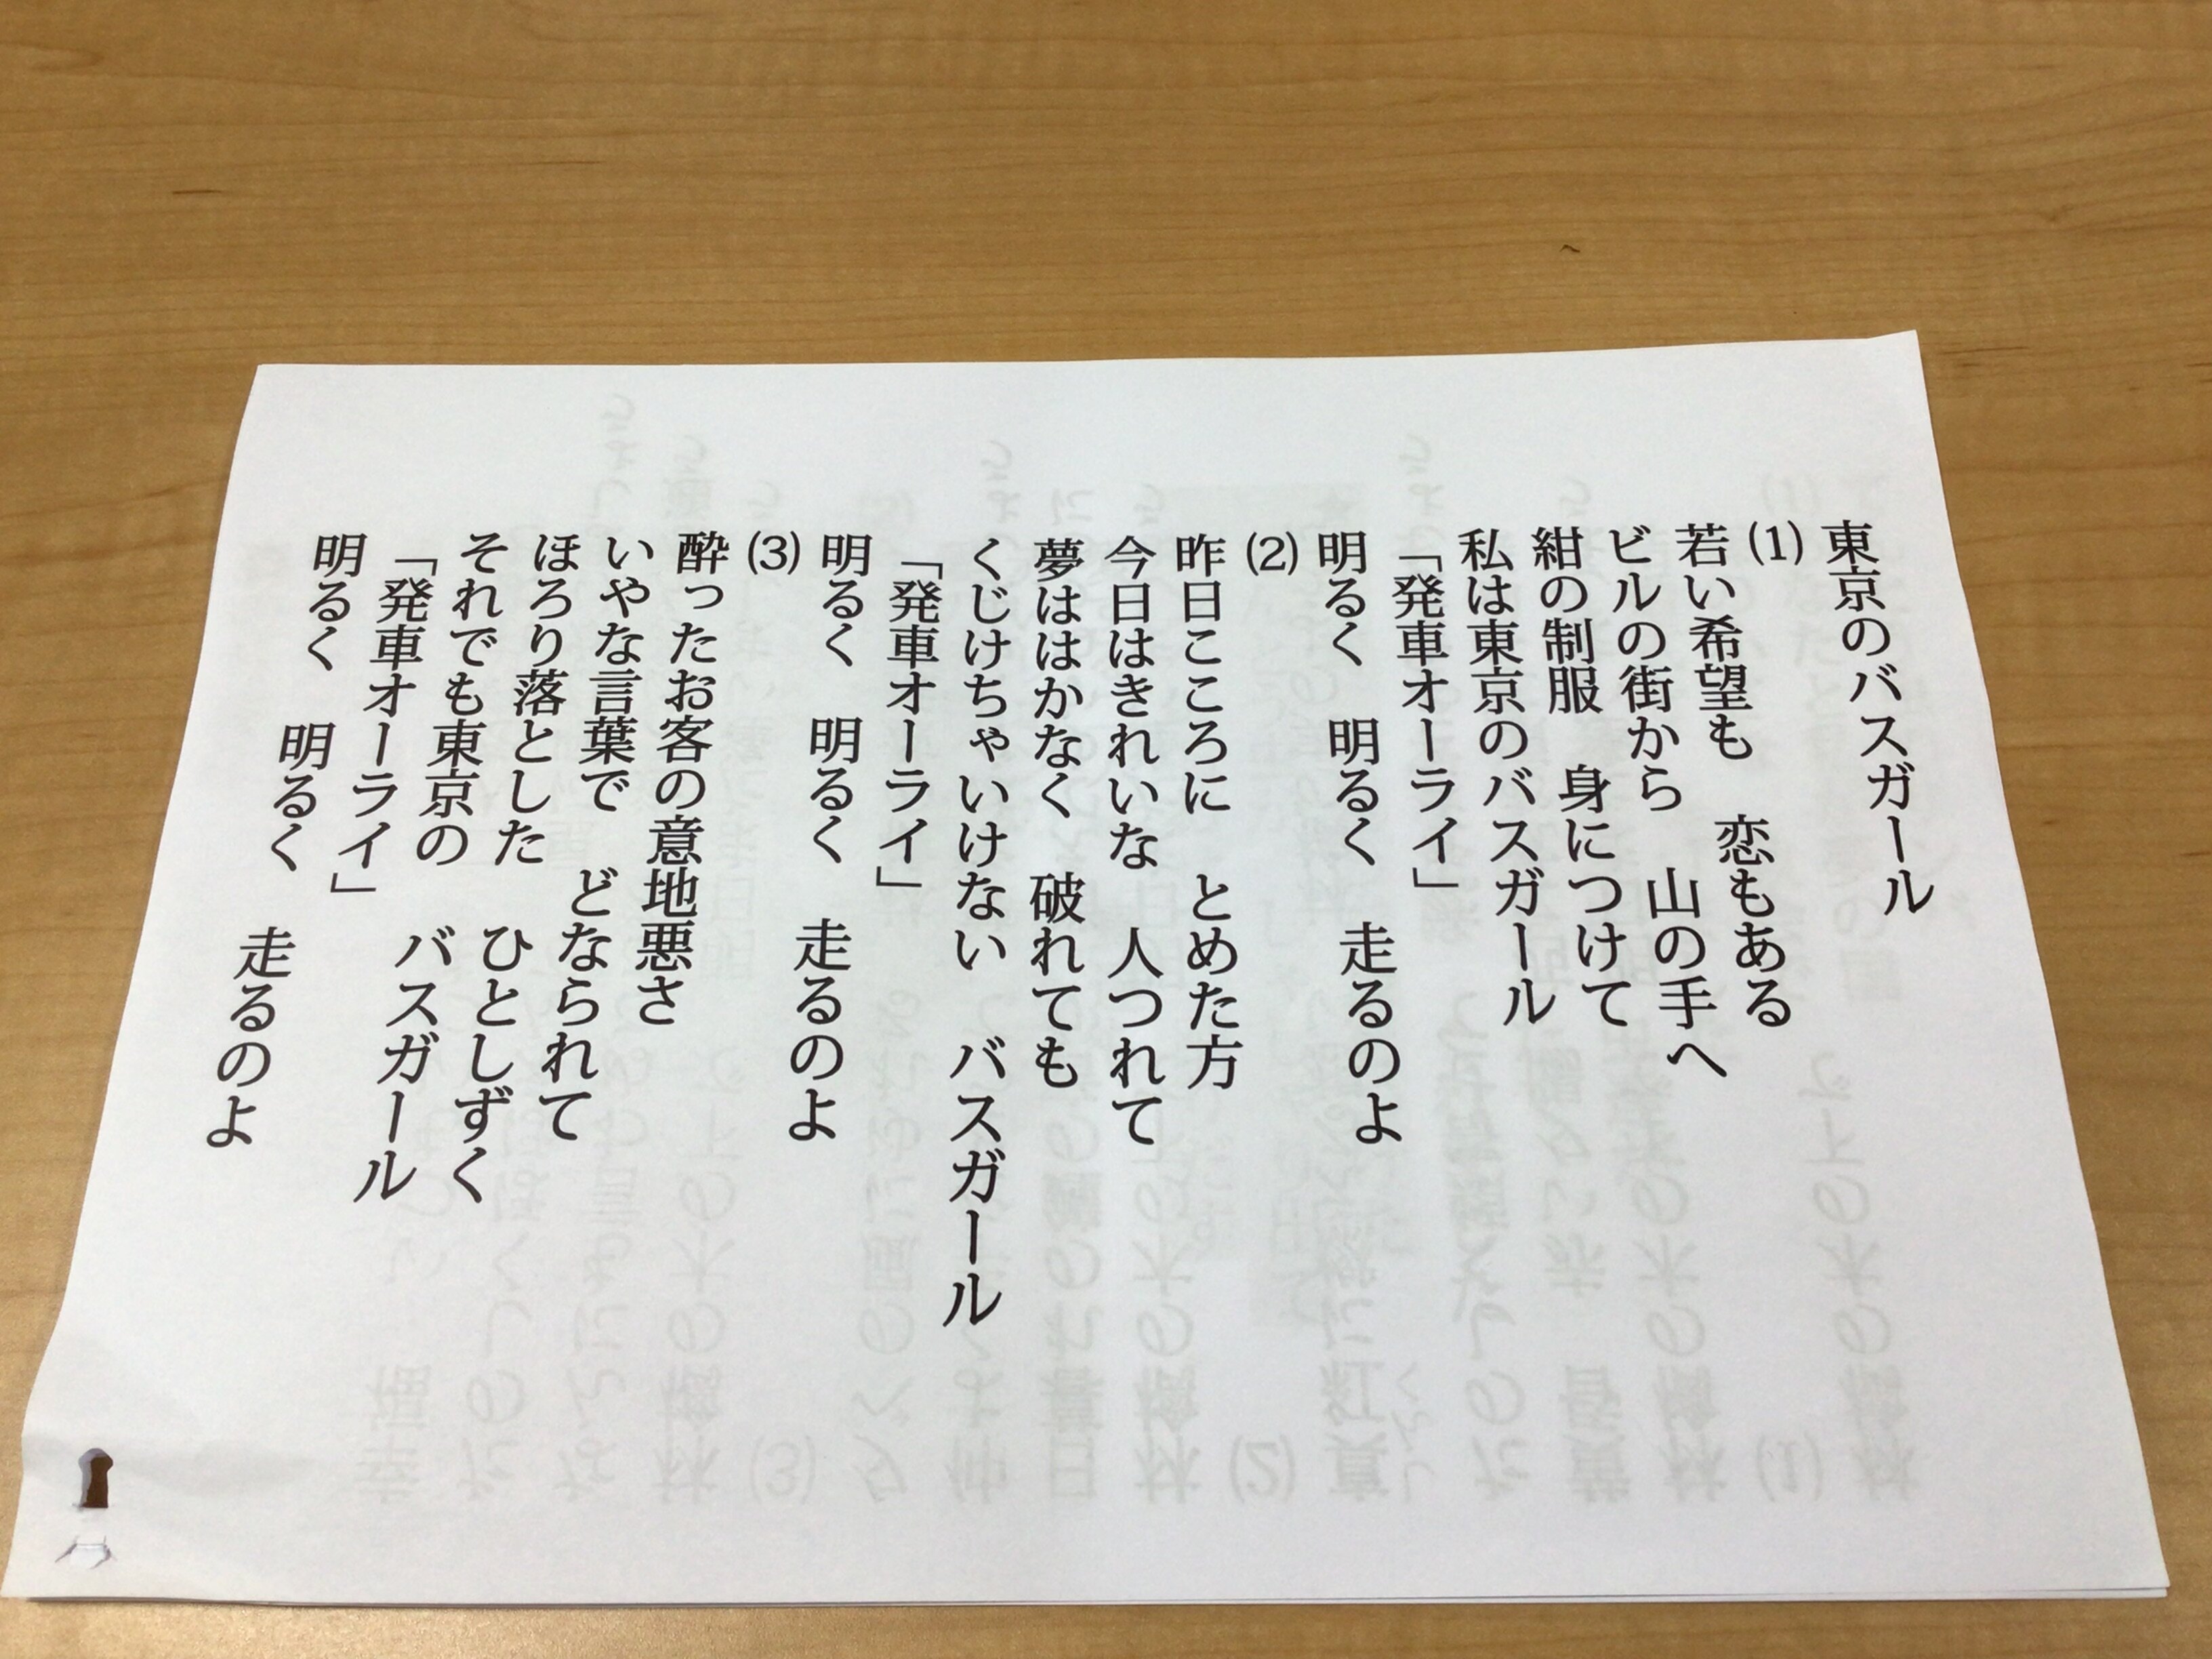 東京のバスガール
(1)
若い希望も　恋もある
ビルの街から　山の手へ
紺の制服　身につけて
私は東京のバスガール
「発車オーライ」
明るく　明るく　走るのよ
(2)
昨日こころに　とめた方
今日はきれいな　人つれて
夢ははかなく　破れても
くじけちゃいけない　バスガール
「発車オーライ」
明るく　明るく　走るのよ
(3)
酔ったお客の意地悪さ
いやな言葉で　どなられて
ほろり落とした　ひとしずく
それでも東京の　バスガール
「発車オーライ」
明るく　明るく　走るのよ